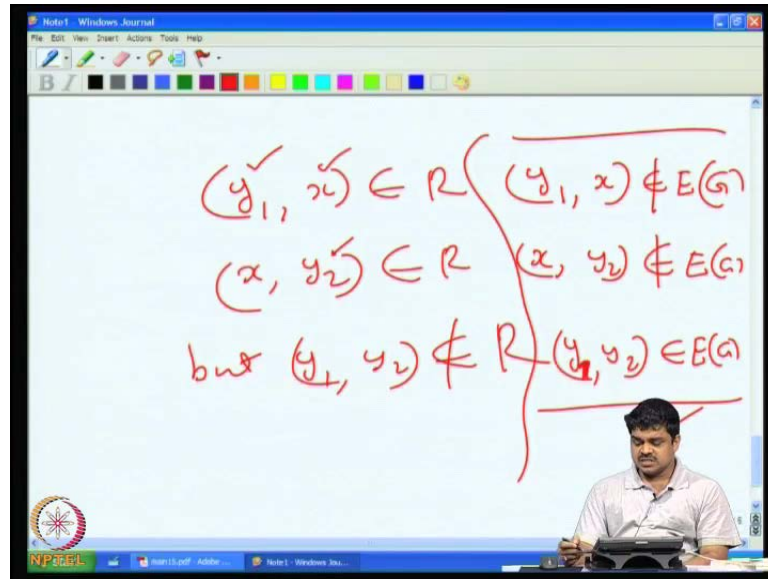 Note1 - Windows Journal
File Edit View Insert Actions Tools Help
B I
(y₁, x) ∈ R (y₁, x) ∉ E(G)
(x, y₂) ∈ R (x, y₂) ∉ E(G)
but (y₁, y₂) ∉ R (y₁, y₂) ∈ E(G)
NPTEL
Note1 - Windows Jou...